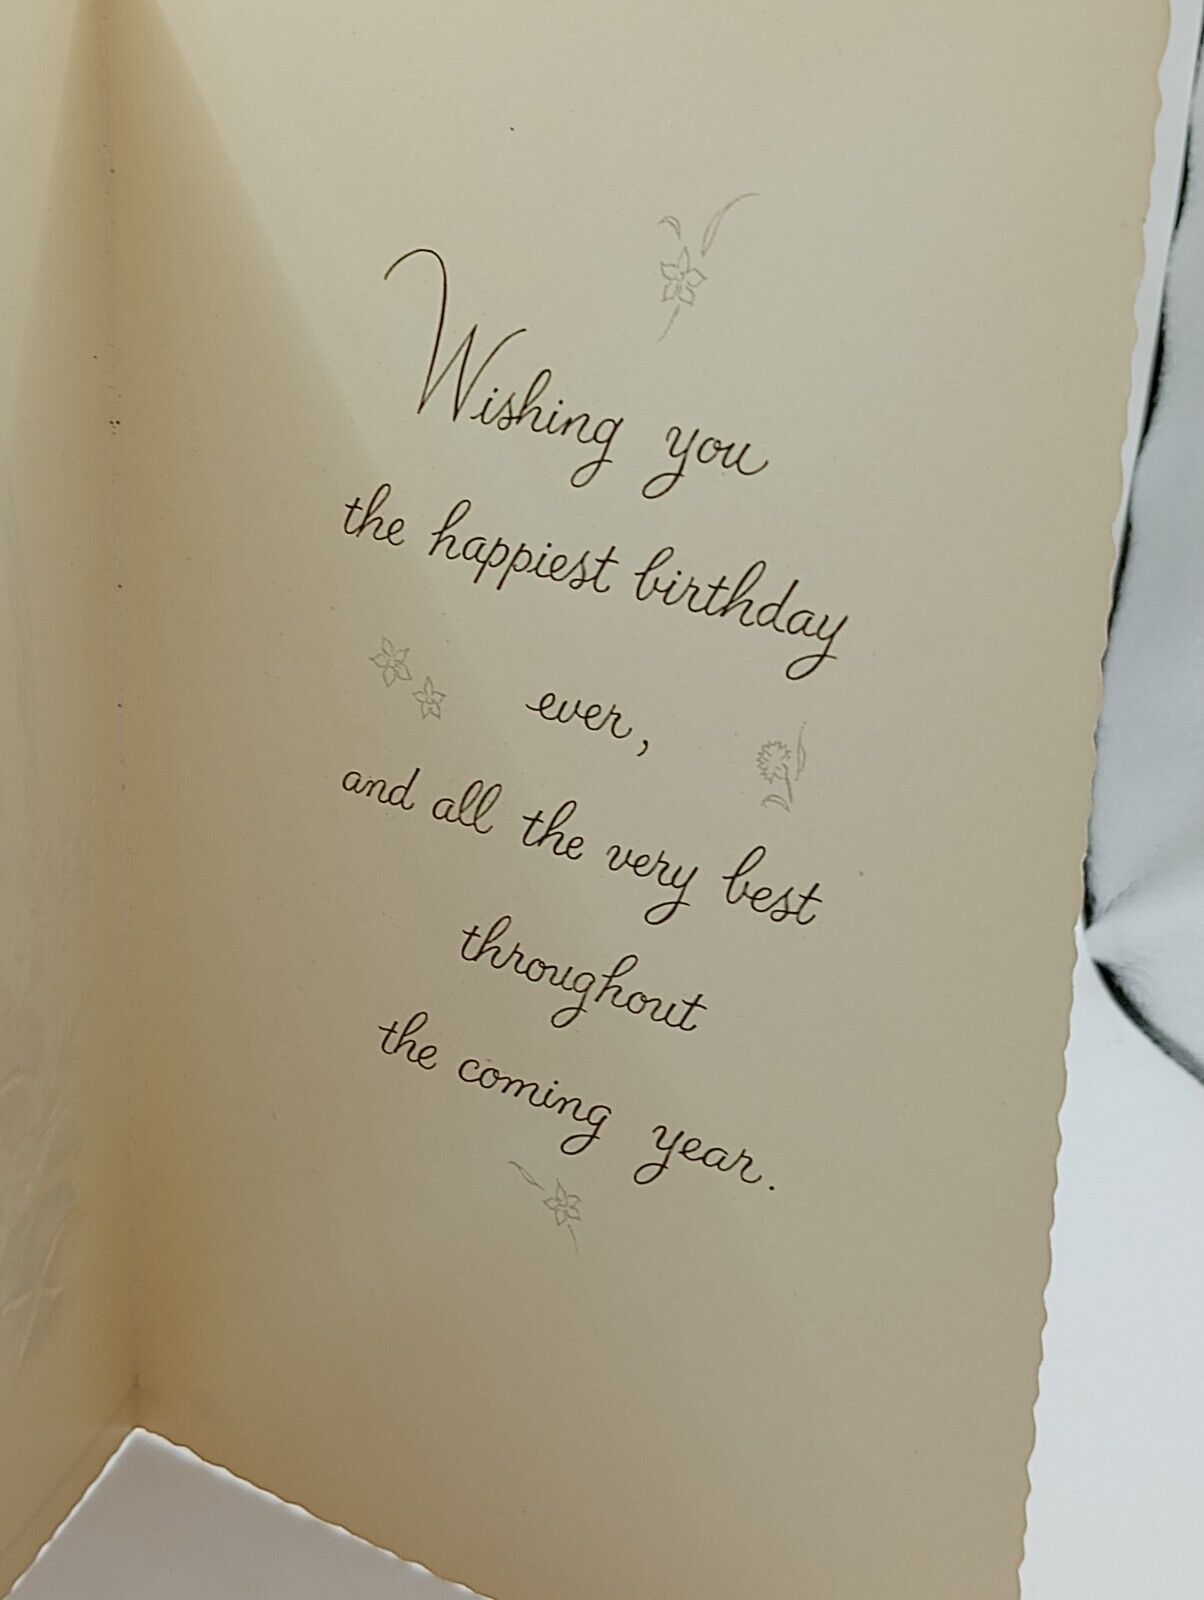 Wishing you
the happiest birthday
ever,
and all the very best
throughout
the coming year.